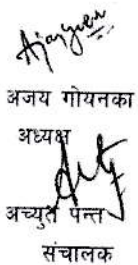 अजय गोयनका
अध्यक्ष
अच्युत पन्त
संचालक